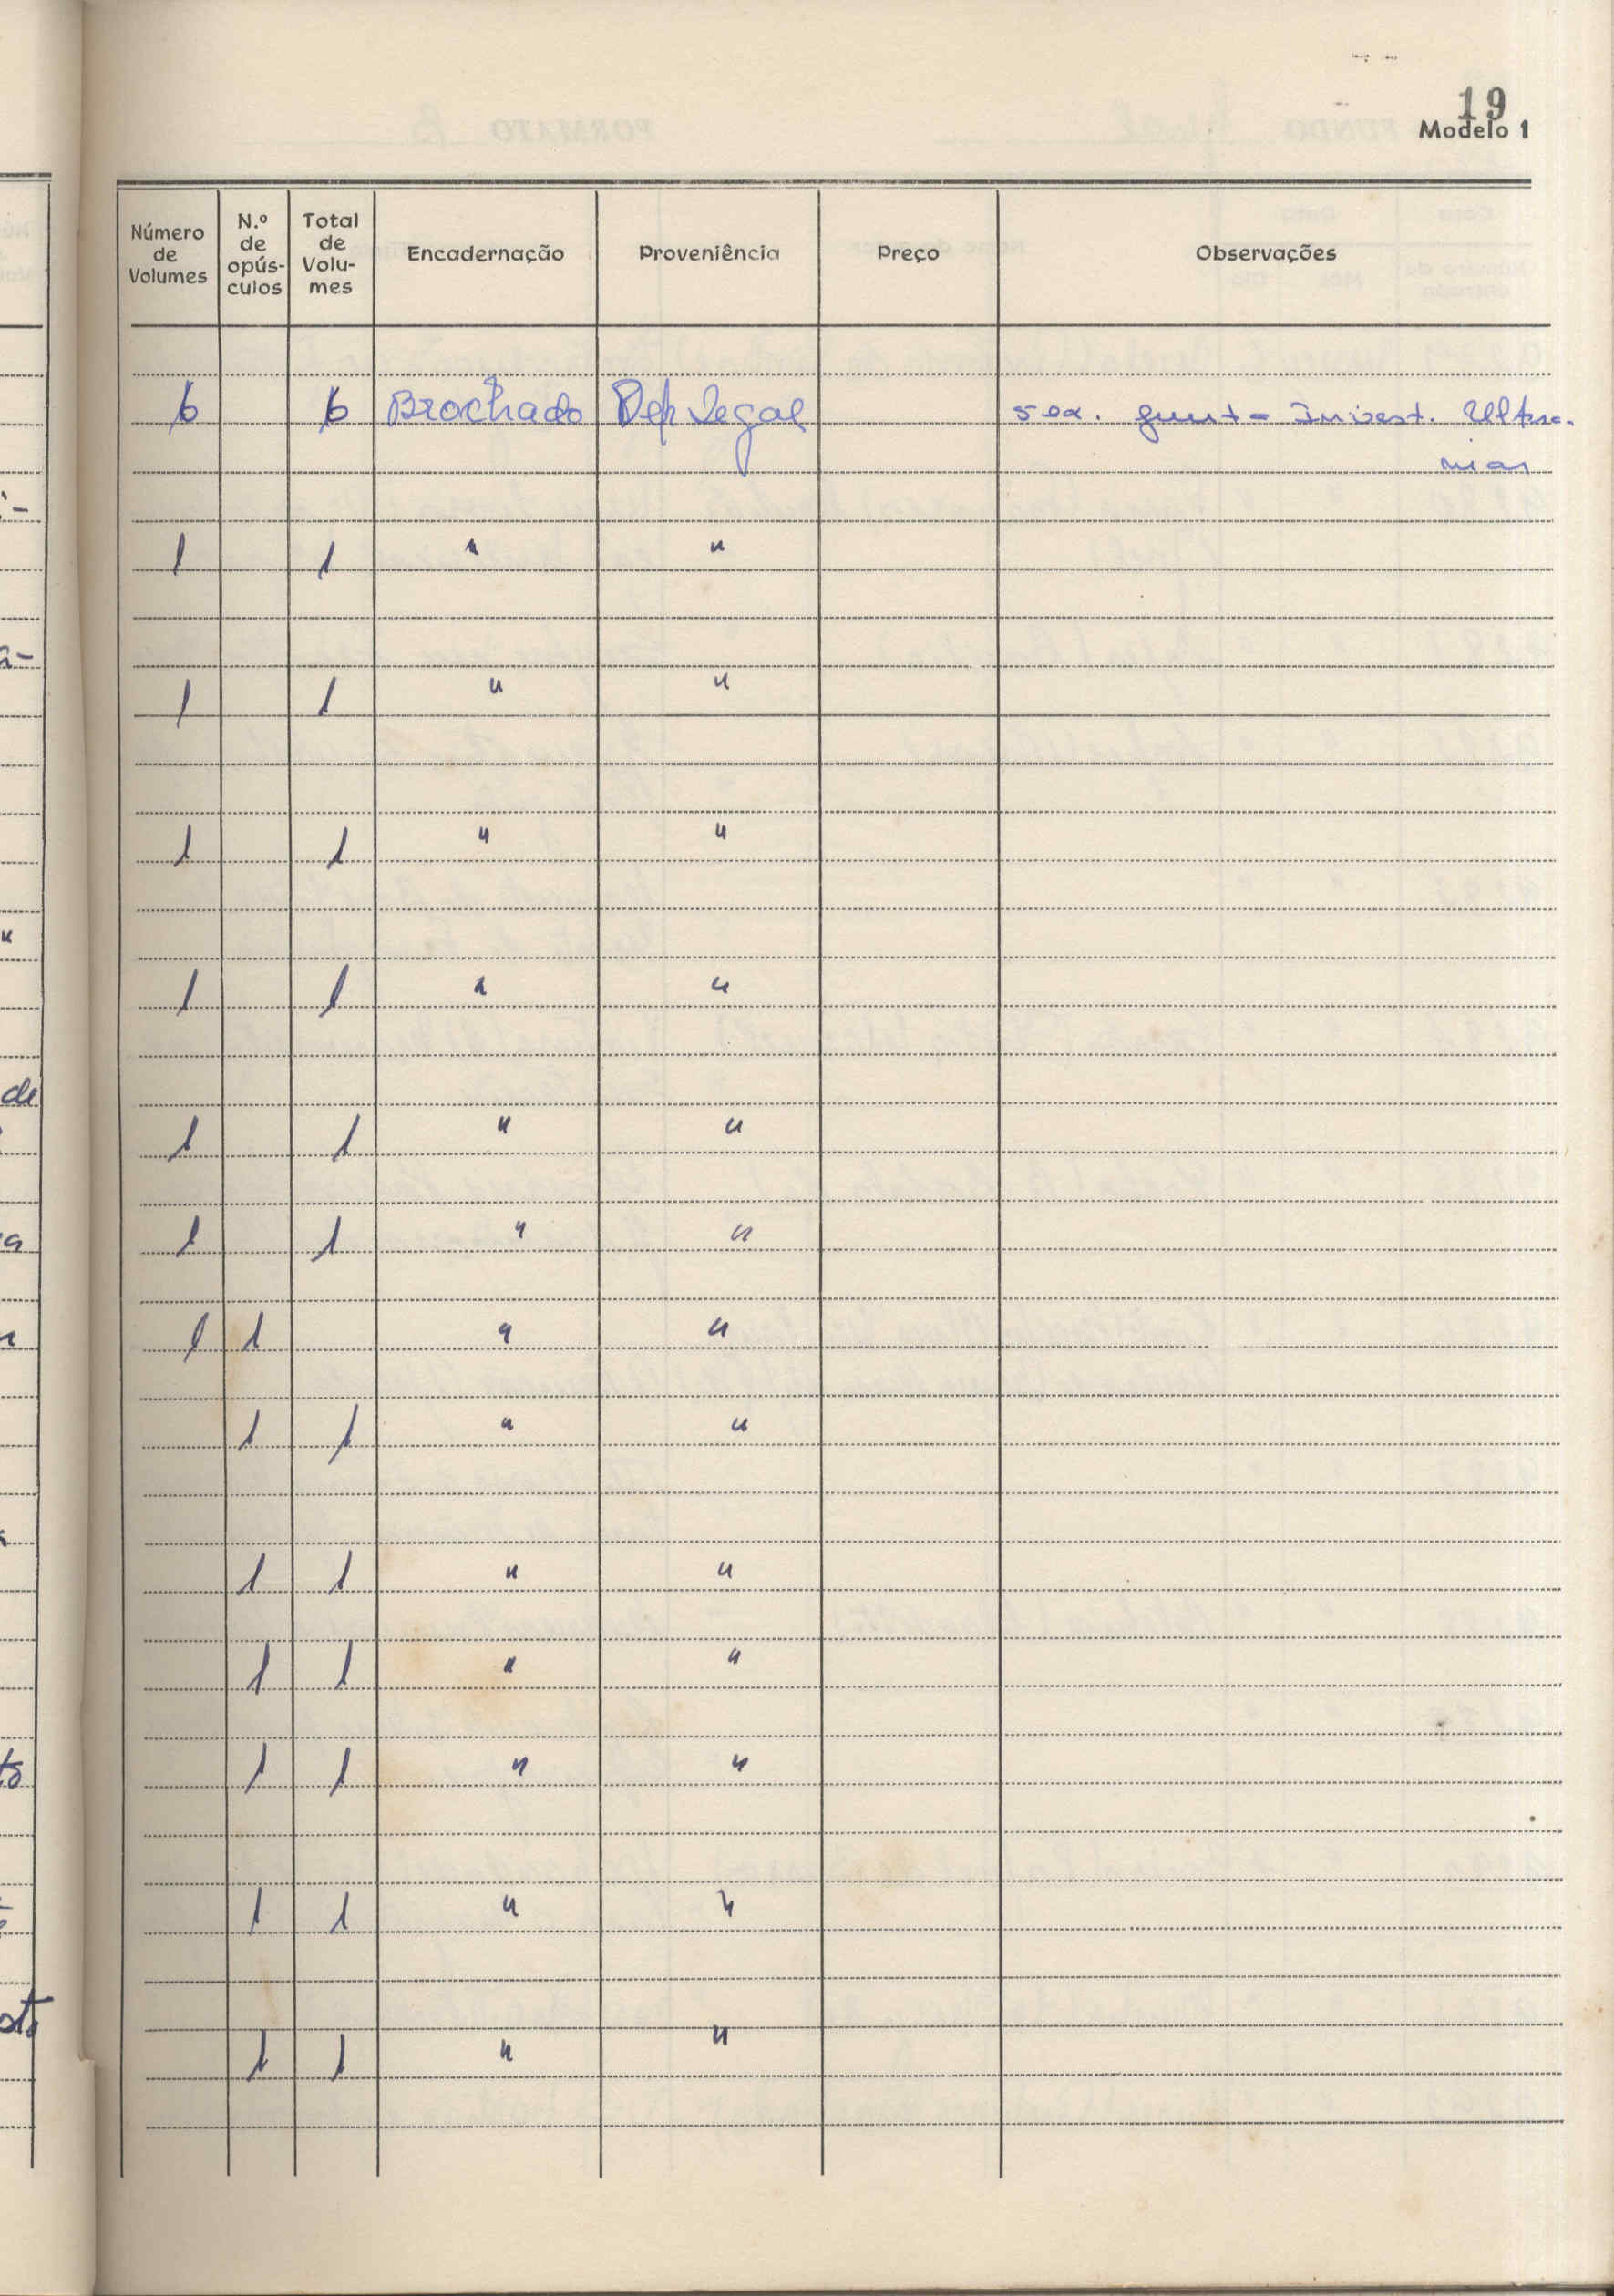 19
Modelo 1
Número de Volumes | N.º de opús-culos | Total de Volu-mes | Encadernação | Proveniência | Preço | Observações
6 6 Brochado Dep Legal Junta Invest. Ultra-
mar
1 1 " "
1 1 " "
1 1 " "
1 1 " "
1 1 " "
1 1 " "
1 1 " "
1 1 " "
1 1 " "
1 1 " "
1 1 " "
1 1 " "
1 1 " "